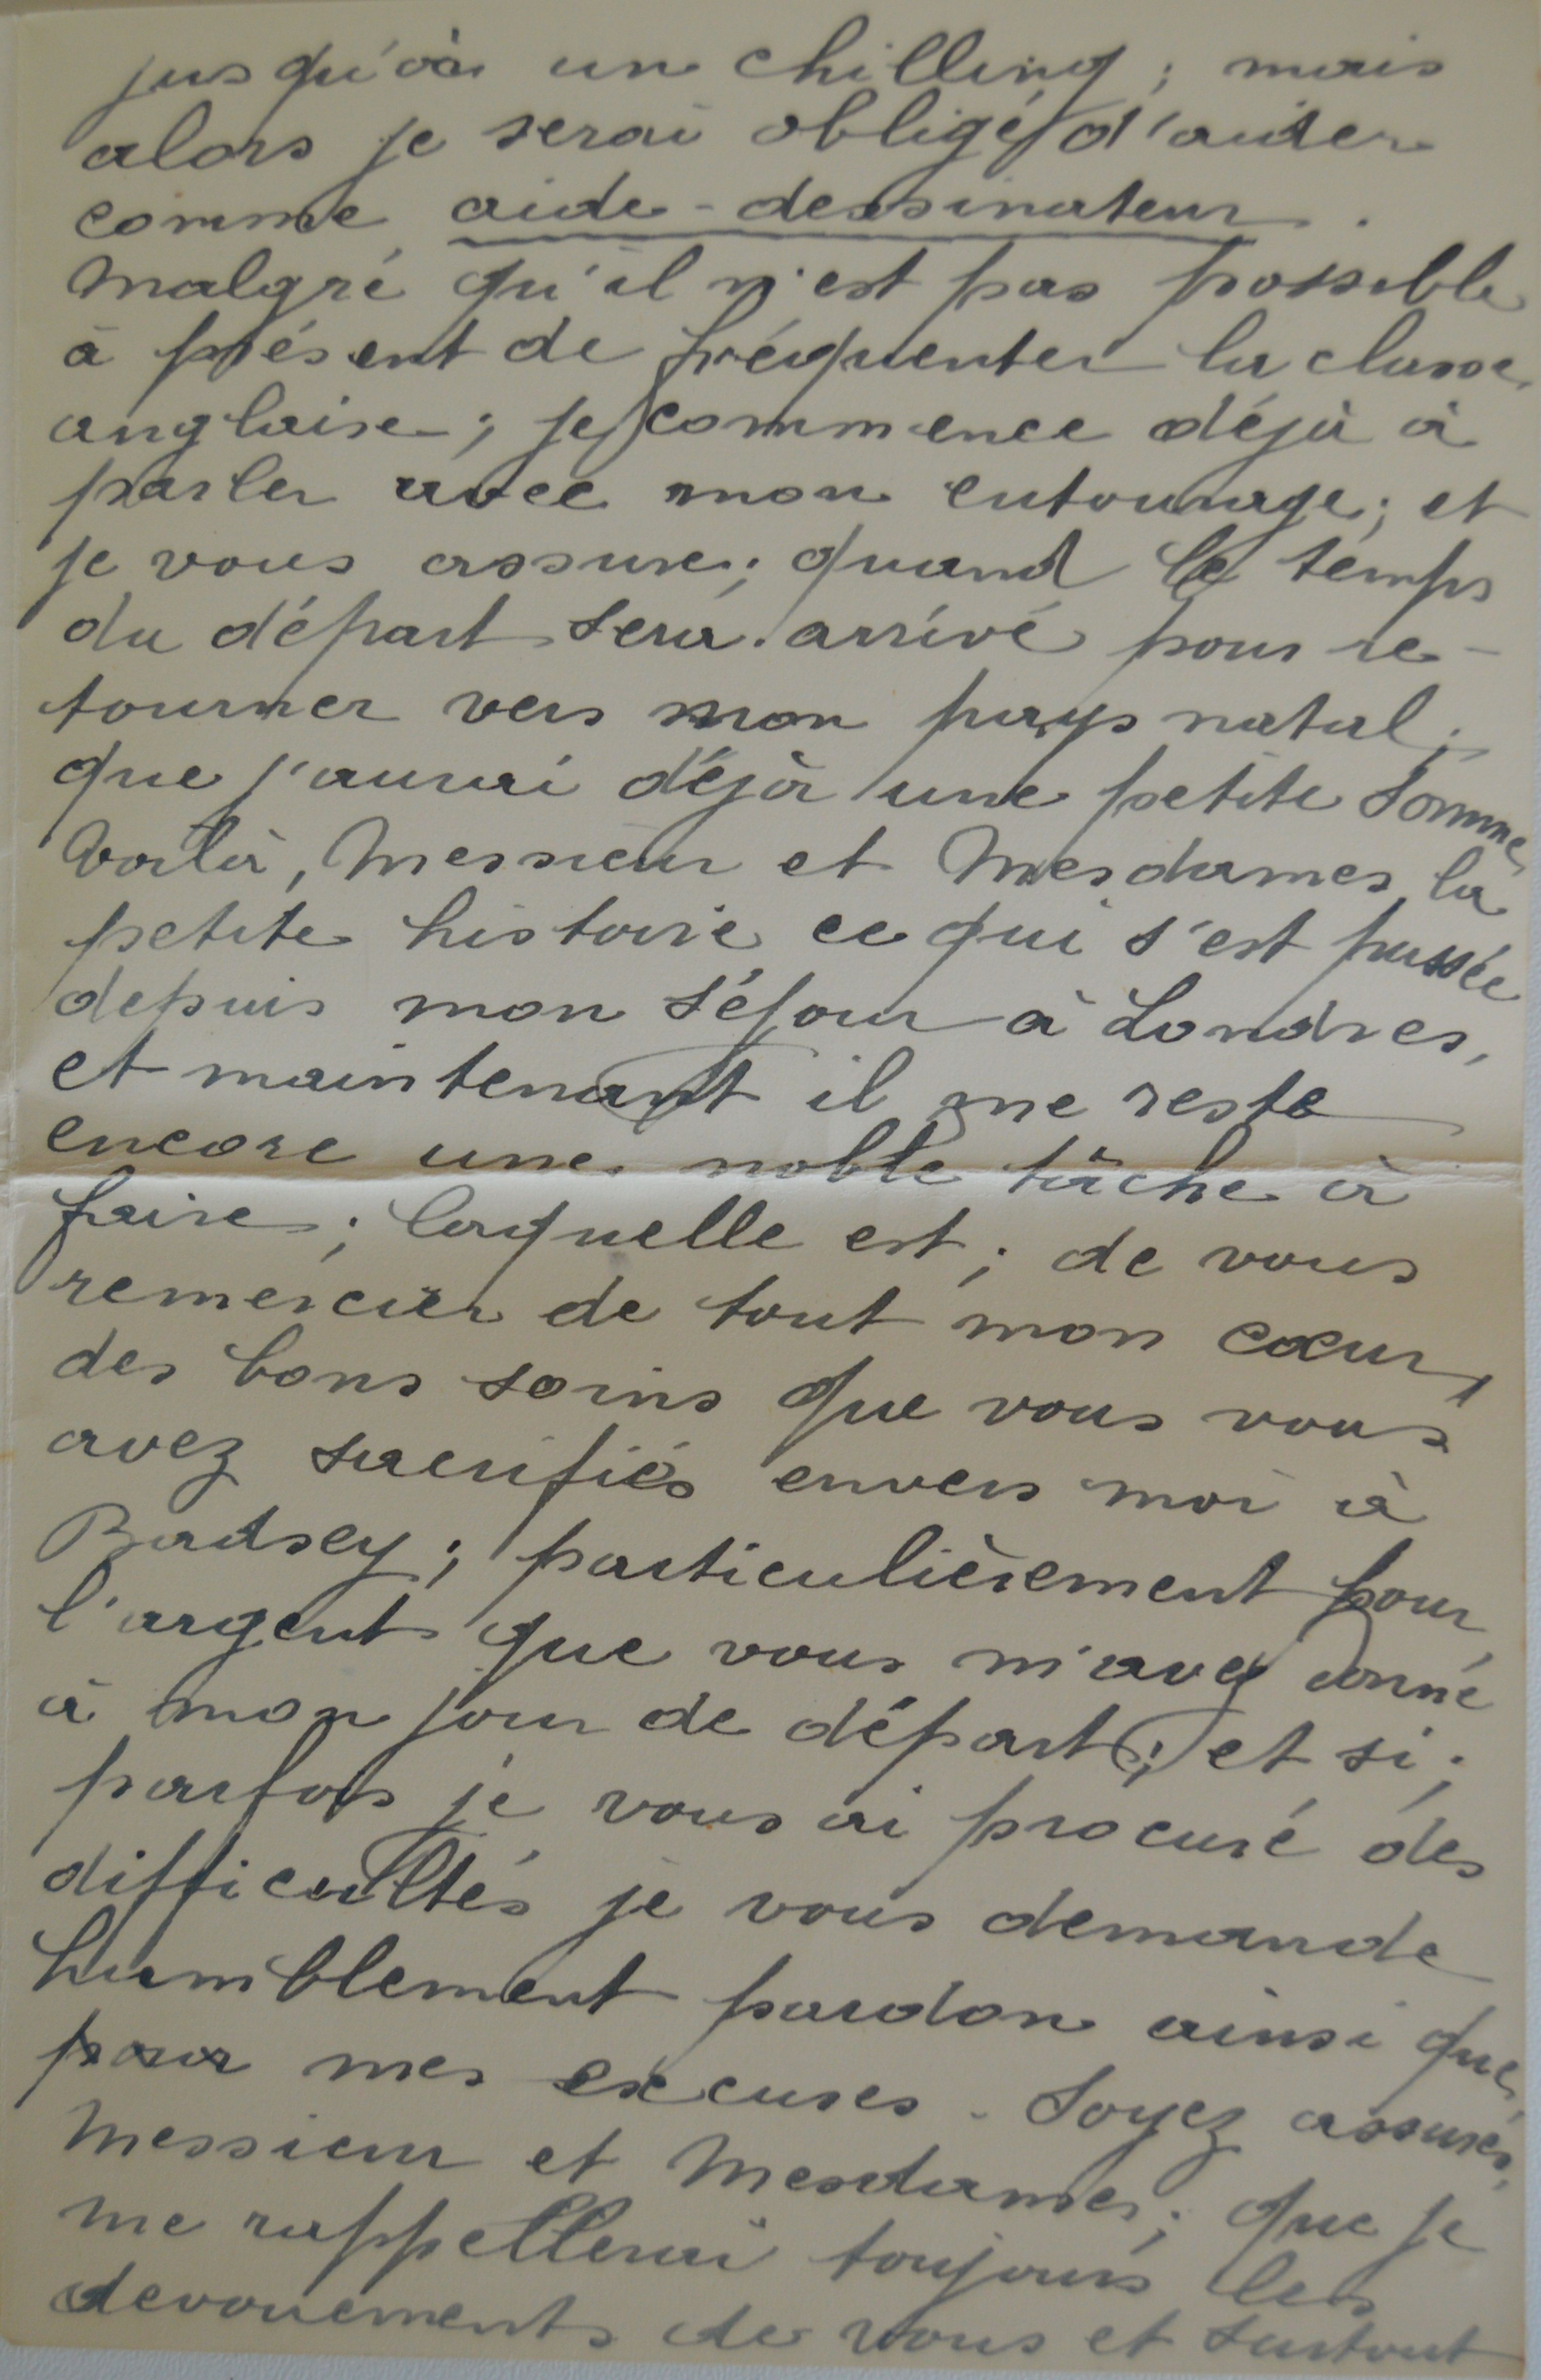 jusqu'à un chilling ; mais
alors je serai obligé d'aider
comme aide-dessinateur.
Malgré qu'il n'est pas possible
à présent de fréquenter la classe
anglaise ; je commence déjà à
parler avec mon entourage ; et
je vous assure ; quand le temps
du départ sera arrivé pour re-
tourner vers mon pays natal ;
que j'aurai déjà une petite somme
Voilà, Messieur et Mesdames, la
petite histoire ce qui s'est passée
depuis mon séjour à Londres,
et maintenant il me reste
encore une noble tâche à
faire ; laquelle est ; de vous
remercier de tout mon cœur,
des bons soins que vous vous
avez sacrifiés envers moi à
Badsey ; particulièrement pour
l'argent que vous m'avez donné
à mon jour de départ ; et si ;
parfois je vous ai procuré des
difficultés je vous demande
humblement pardon ainsi que
pour mes excuses. Soyez assurés,
Messieur et Mesdames ; que je
me rappellerai toujours les
devouements de vous et surtout